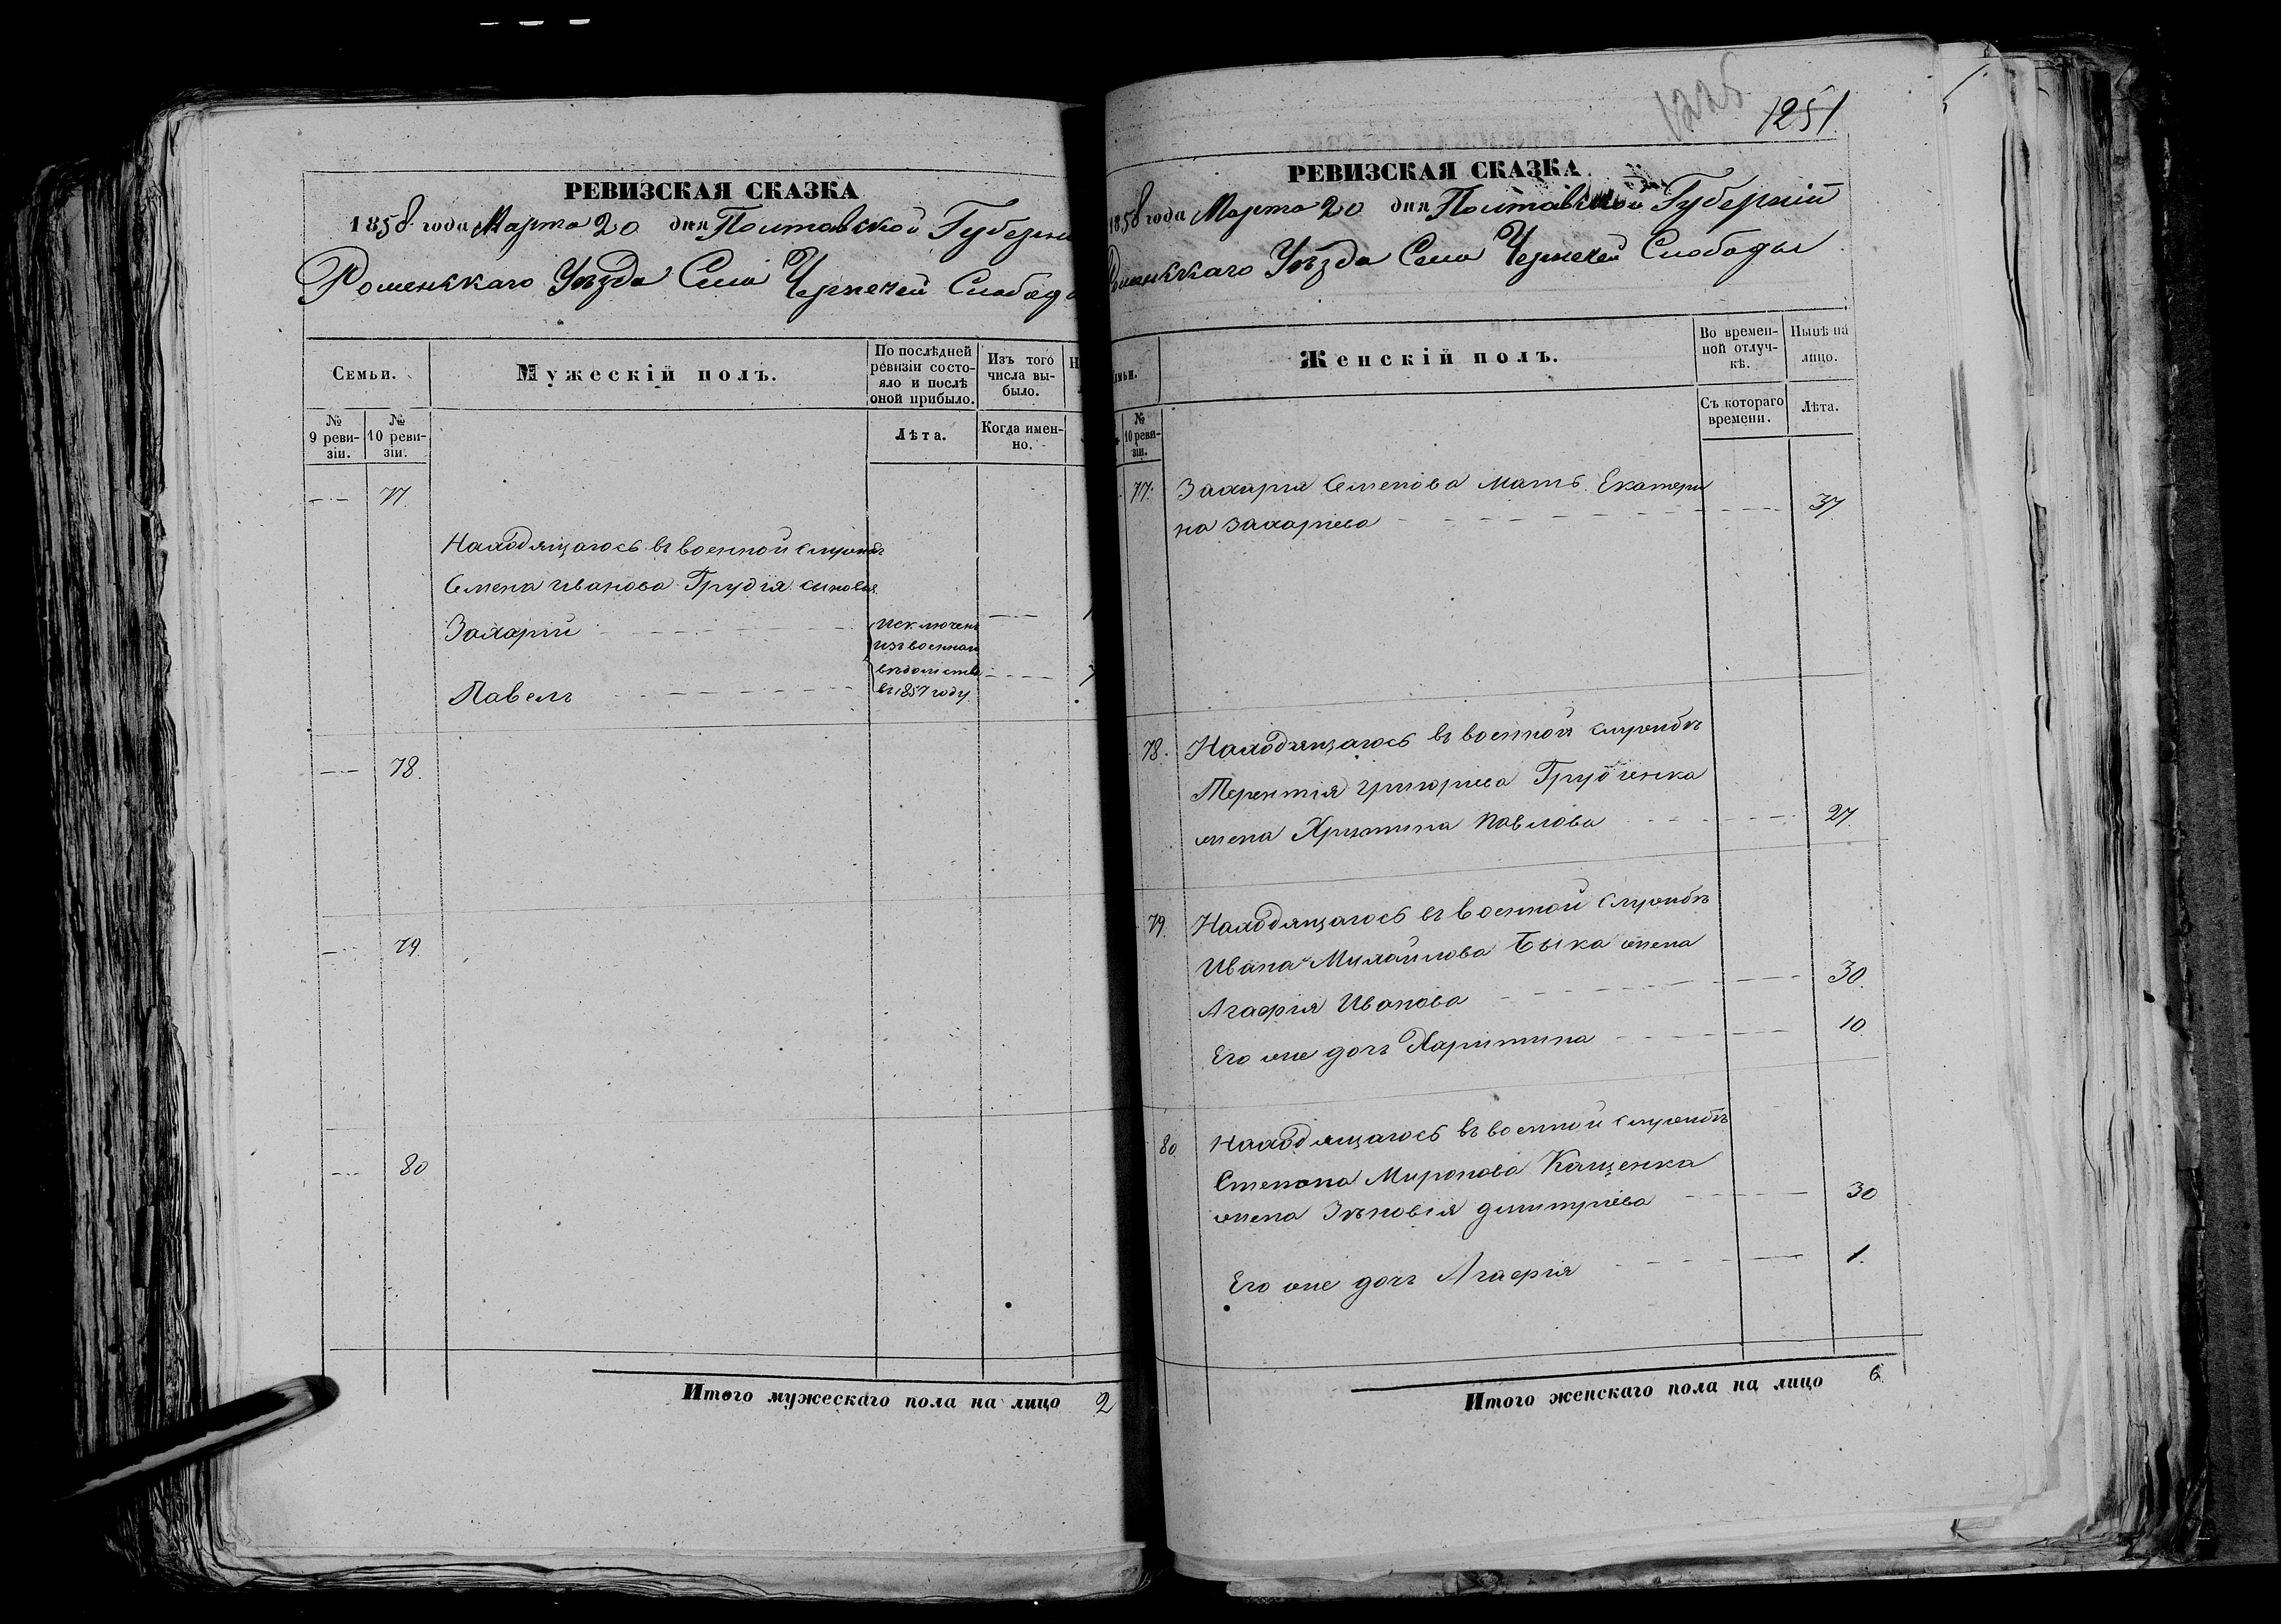 РЕВИЗСКАЯ СКАЗКА
1858 года Марта 20 дня Полтавской Губерни
Роменскаго Уѣзда Села Чернечей Слобод
Семьи.
Мужескій полъ.
По послѣдней
ревизіи состо-
яло и послѣ
оной прибыло.
Изъ того
числа вы-
было.
№
9 реви-
зіи.
№
10 реви-
зіи.
Лѣта.
Когда имен-
но.
77
Находящагося въ военной службѣ
Семена Иванова Грудія сыновья
Захарій
исключенъ
изъ военнаго
вѣдомства
въ 1857 году
Павелъ
78.
79.
80
Итого мужескаго пола на лицо 2
1225
1251.
РЕВИЗСКАЯ СКАЗКА
1858 года Марта 20 дня Полтавской Губерніи
Роменскаго Уѣзда Села Чернечей Слободы
Женскій полъ.
Во времен-
ной отлуч-
кѣ.
Нынѣ на
лицо.
№
10 реви-
зіи.
Съ котораго
времени.
Лѣта.
77. Захарія Семенова мать Екатери
на Захаріева 37
78. Находящагося въ военной службѣ
Терентія Григоріева Грудіенка
жена Христина Павлова 27
79. Находящагося въ военной службѣ
Ивана Михайлова Быка жена
Агафія Иванова 30.
Его же дочь Харитина 10
80. Находящагося въ военной службѣ
Степана Миронова Кащенка
жена Зѣновія Дмитріева 30
Его же дочь Агафія 1.
Итого женскаго пола на лицо 6